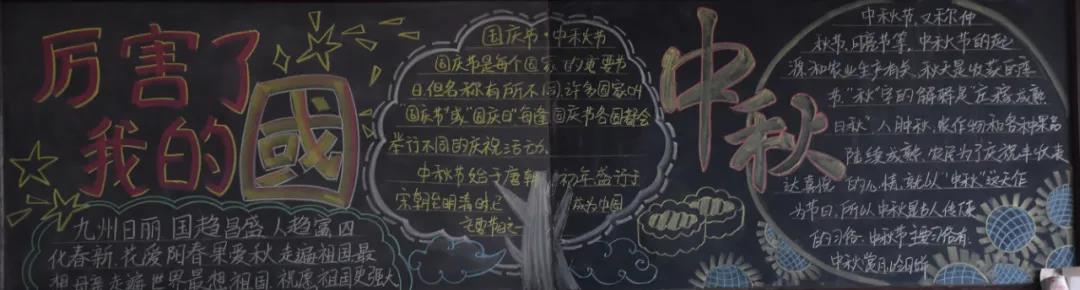 厉害了
我的國
九州日丽 国趋昌盛 人趋富 四
化春新 花爱阳春果爱秋 走遍祖国最
想母亲 走遍世界最想祖国 祝愿祖国更强大
国庆节·中秋节
国庆节是每个国家的重要节
日,但名称有所不同,许多国家叫
"国庆节"或"国庆日"每逢国庆节各国都会
举行不同的庆祝活动.
中秋节始于唐朝初年,盛行于
宋朝,至明清时已成为中国
主要节日之一
中秋
中秋节,又称仲
秋节、月亮节等,中秋节的起
源和农业生产有关,秋天是收获的季
节."秋"字的解释是"庄稼成熟
曰秋",八月中秋,农作物和各种果品
陆续成熟,农民为了庆祝丰收表
达喜悦的心情,就以"中秋"这天作
为节日,所以中秋是古人传侠
的习俗.中秋节主要习俗有
中秋赏月